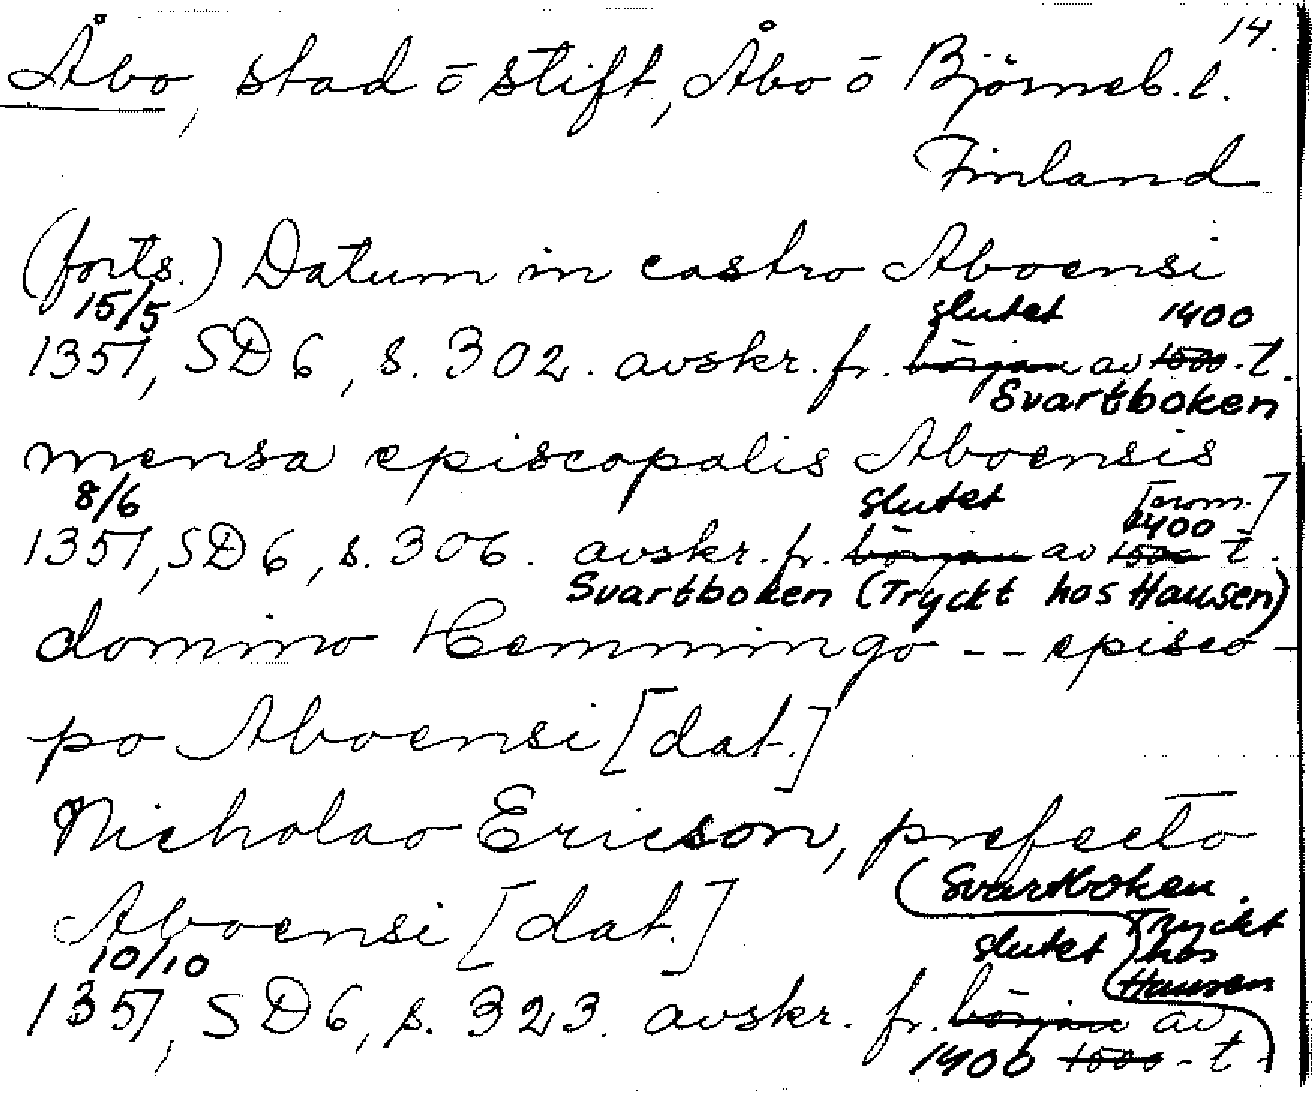 14.
Åbo, stad o stift, Åbo o Björneb. l.
Finland
(forts.) Datum in castro Aboensi
15/5 slutet 1400
1351, SD 6, s. 302. avskr. fr. början av 1500-t.
Svartboken
mensa episcopalis Aboensis
8/6 slutet [nom.]
1400
1351, SD 6, s. 306. avskr. fr. början av 1500-t.
Svartboken (Tryckt hos Hausen)
domino Hemmingo -- episco-
po Aboensi [dat.]
Nicholao Ericson, prefecto
(Svartboken.
Aboensi [dat.] Tryckt
10/10 slutet hos
Hausen)
1351, SD 6, s. 323. avskr. fr. början av
1400 1500-t.